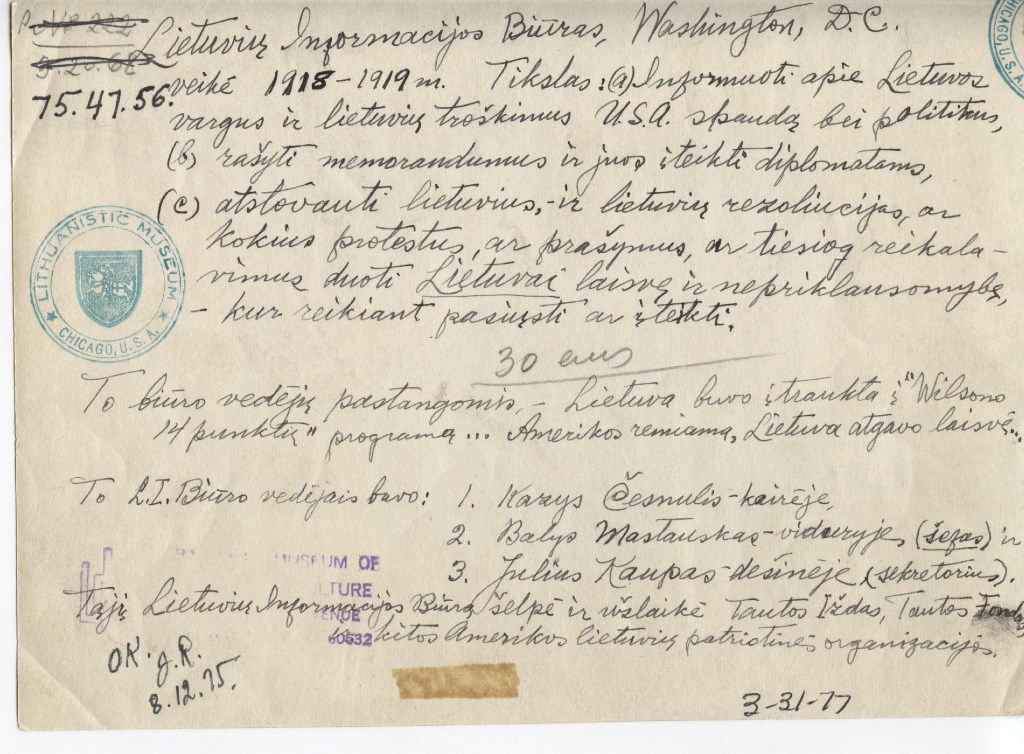 Lietuvių Informacijos Biūras, Washington, D.C.
5.20.68
75.47.56.
veikė 1918-1919 m. Tikslas: (a) Informuoti apie Lietuvos
vargus ir lietuvių troškimus U.S.A. spaudą bei politikus,
(b) rašyti memorandumus ir juos įteikti diplomatams,
(c) atstovauti lietuvius, - ir lietuvių rezoliucijas, ar
kokius protestus, ar prašymus, ar tiesiog reikala-
vimus duoti Lietuvai laisvę ir nepriklausomybę,
- kur reikiant pasiųsti ar įteikti.
LITHUANISTIC MUSEUM
CHICAGO, U.S.A.
CHICAGO, U.S.A.
30 ems
To biūro vedėjų pastangomis, - Lietuva buvo įtraukta į "Wilsono
14 punktų" programą... Amerikos remiama, Lietuva atgavo laisvę...
To L.I. Biūro vedėjais buvo: 1. Kazys Česnulis - kairėje,
2. Balys Mastauskas - viduryje, (šefas) ir
3. Julius Kaupas - dešinėje (sekretorius).
MUSEUM OF
Tąjį Lietuvių Informacijos Biūrą šelpė ir užlaikė Tautos Iždas, Tautos Fondas,
kitos Amerikos lietuvių patriotinės organizacijos.
60632
OK. J.R.
8.12.75.
3-31-77